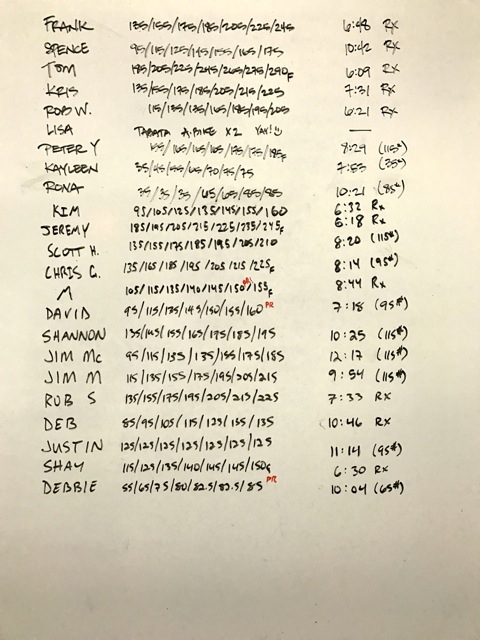 FRANK 135/155/175/185/205/225/245 6:48 RX
SPENCE 95/115/125/145/155/165/175 10:42 RX
TOM 185/205/225/245/265/275/290F 6:09 RX
KRIS 135/155/175/185/205/215/225 7:31 RX
ROB W. 115/135/135/165/185/195/205 6:21 RX
LISA TABATA A.BIKE X2 YAY! —
PETER Y /165/165/165/175/175/185F 8:29 (115#)
KAYLEEN 35/45/55/65/70/75/75 7:53 (35#)
RONA 35/35/35/45/65/85/85 10:21 (85#)
KIM 95/105/125/135/145/155/160 6:32 Rx
JEREMY 185/195/205/215/225/235/245F 6:18 Rx
SCOTT H. 135/155/175/185/195/205/210 8:20 (115#)
CHRIS G. 135/165/185/195/205/215/225F 8:14 (95#)
M 105/115/135/140/145/150/155F 8:44 Rx
DAVID 95/115/135/145/150/155/160 PR 7:18 (95#)
SHANNON 135/145/155/165/175/185/195 10:25 (115#)
JIM Mc 95/115/135/135/155/175/185 12:17 (115#)
JIM M 115/135/155/175/195/205/215 9:54 (115#)
ROB S 135/155/175/195/205/215/225 7:33 Rx
DEB 85/95/105/115/125/135/135 10:46 Rx
JUSTIN 125/125/125/125/125/125/125 11:14 (95#)
SHAY 115/125/135/140/145/145/150F 6:30 Rx
DEBBIE 55/65/75/80/82.5/82.5/85 PR 10:04 (65#)